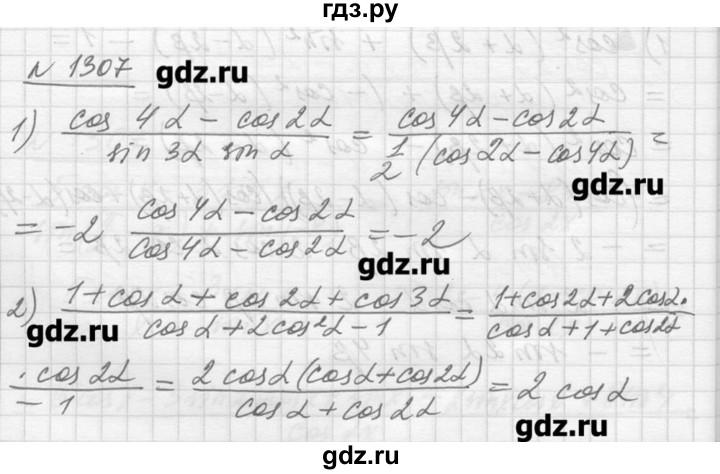 гдз.ру
N 1307 gdz.ru
1) (cos 4α − cos 2α)/(sin 3α sin α) = (cos 4α − cos 2α)/(1/2 (cos 2α − cos 4α)) =
gdz.ru
= −2 (cos 4α − cos 2α)/(cos 4α − cos 2α) = −2
gdz.ru
2) (1 + cos α + cos 2α + cos 3α)/(cos α + 2 cos²α − 1) = (1 + cos 2α + 2 cos α ·)/(cos α + 1 + cos 2α
gdz.ru
· cos 2α)/(− 1) = (2 cos α (cos α + cos 2α))/(cos α + cos 2α) = 2 cos α
gdz.ru
gdz.ru